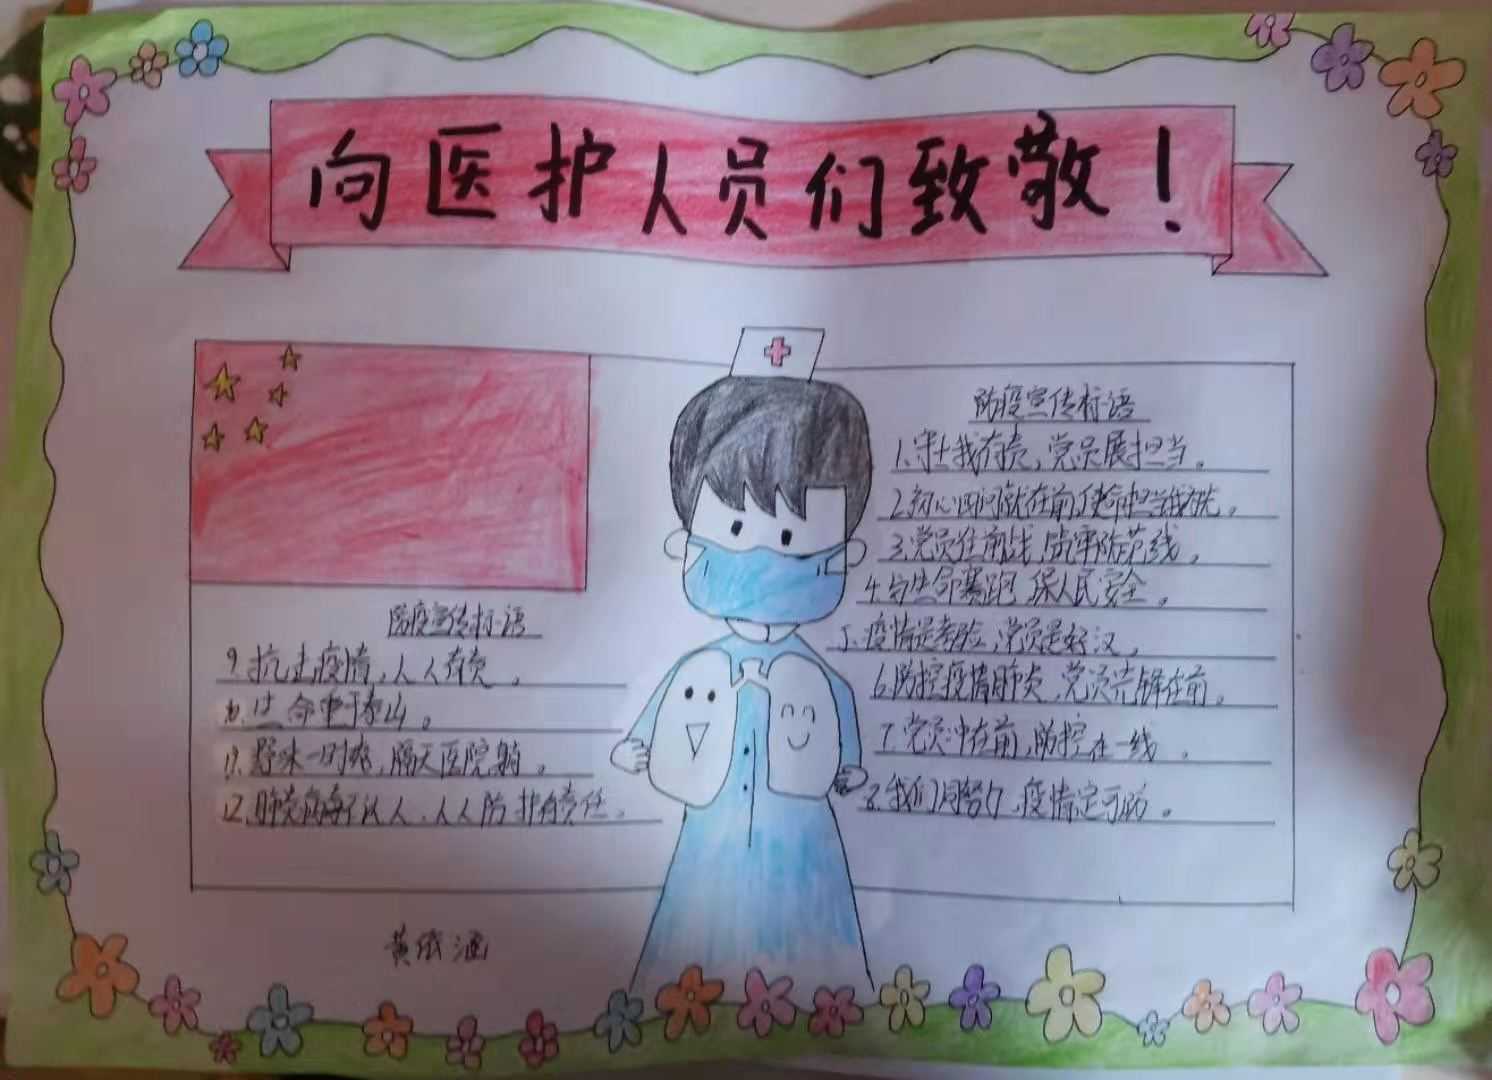 向医护人员们致敬！
防疫宣传标语
9.抗击疫情，人人有责。
10.生命重于泰山。
11.野味一时爽，隔天医院躺。
12.肺炎病毒不认人，人人防护有责任。
防疫宣传标语
1.守土我有责，党员展担当。
2.初心叩问就在前，使命担当我
3.党员在前线，防线。
4.与生命赛跑，保人民安全。
5.疫情是考验，党员是好汉。
6.防控疫情肺炎，党员先锋在前。
7.党员冲在前，防控在一线。
8.我们同努力，疫情定可防。
黄依涵